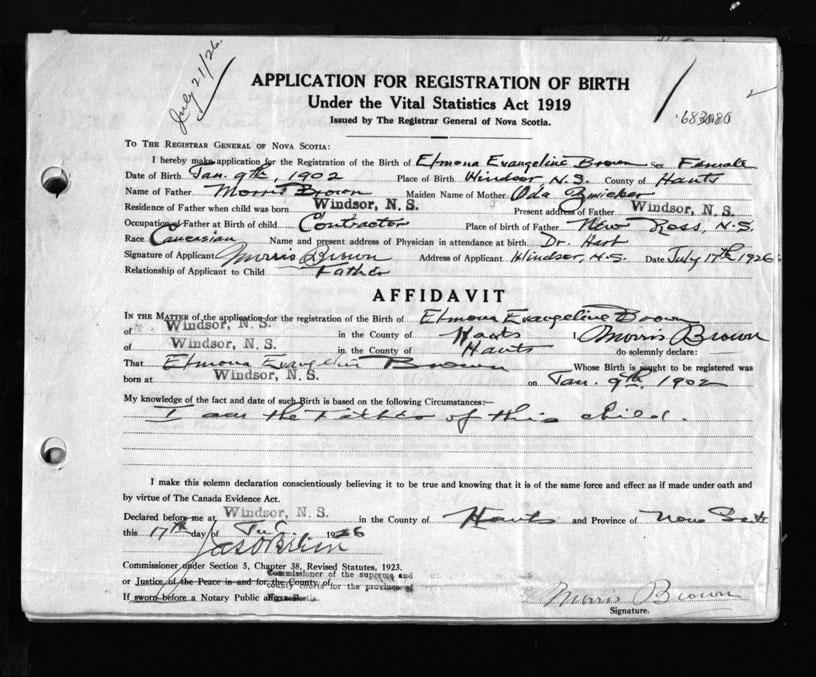 July 21/26
683086
APPLICATION FOR REGISTRATION OF BIRTH
Under the Vital Statistics Act 1919
Issued by The Registrar General of Nova Scotia.
TO THE REGISTRAR GENERAL OF NOVA SCOTIA:
I hereby make application for the Registration of the Birth of Elmona Evangeline Brown Sex Female
Date of Birth Jan. 9th, 1902 Place of Birth Windsor, N.S. County of Hants
Name of Father Morris Brown Maiden Name of Mother Oda Zwicker
Residence of Father when child was born Windsor, N. S. Present address of Father Windsor, N. S.
Occupation of Father at Birth of child Contractor Place of birth of Father New Ross, N.S.
Race Caucasian Name and present address of Physician in attendance at birth Dr. Hart
Signature of Applicant Morris Brown Address of Applicant Windsor, N.S. Date July 17th 1926
Relationship of Applicant to Child Father
AFFIDAVIT
IN THE MATTER of the application for the registration of the Birth of Elmona Evangeline Brown
of Windsor, N. S. in the County of Hants I, Morris Brown
of Windsor, N. S. in the County of Hants do solemnly declare:
That Elmona Evangeline Brown Whose Birth is sought to be registered was
born at Windsor, N. S. on Jan. 9th, 1902
My knowledge of the fact and date of such Birth is based on the following Circumstances:—
I am the Father of this child.
I make this solemn declaration conscientiously believing it to be true and knowing that it is of the same force and effect as if made under oath and
by virtue of The Canada Evidence Act.
Declared before me at Windsor, N. S. in the County of Hants and Province of Nova Scotia
this 17th day of 1926
Commissioner under Section 5, Chapter 38, Revised Statutes, 1923.
Commissioner of the supreme and
or Justice of the Peace in and for the County of
county courts for the province of
If sworn before a Notary Public
Morris Brown
Signature.